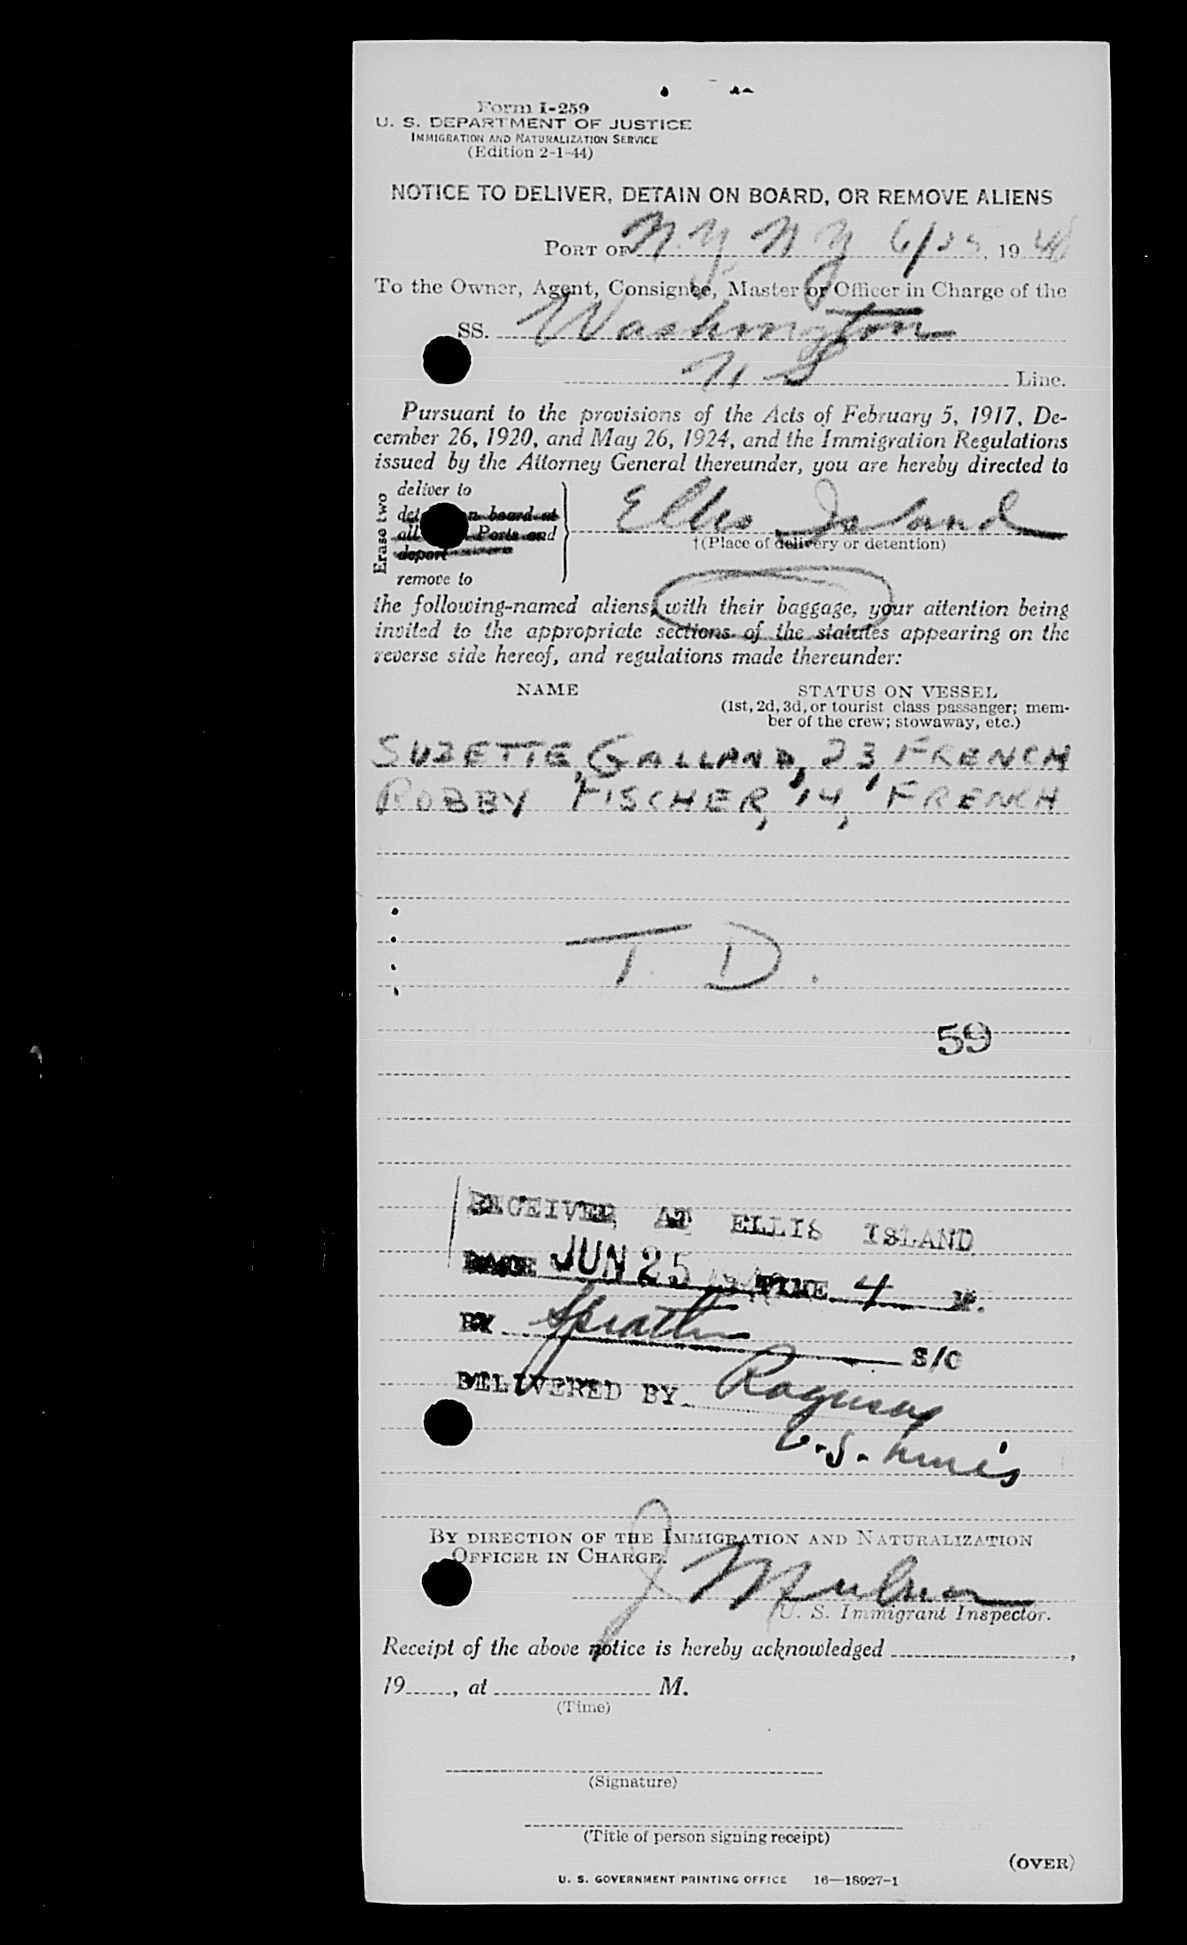 Form I-259
U. S. DEPARTMENT OF JUSTICE
IMMIGRATION AND NATURALIZATION SERVICE
(Edition 2-1-44)
NOTICE TO DELIVER, DETAIN ON BOARD, OR REMOVE ALIENS
PORT OF N.Y. N Y 6/25, 19
To the Owner, Agent, Consignee, Master or Officer in Charge of the
SS. Washington
U S Line.
Pursuant to the provisions of the Acts of February 5, 1917, De-
cember 26, 1920, and May 26, 1924, and the Immigration Regulations
issued by the Attorney General thereunder, you are hereby directed to
Erase two
deliver to
on board at
all Ports and
deport
remove to
Ellis Island
†(Place of delivery or detention)
the following-named aliens, with their baggage, your attention being
invited to the appropriate sections of the statutes appearing on the
reverse side hereof, and regulations made thereunder:
NAME STATUS ON VESSEL
(1st, 2d, 3d, or tourist class passenger; mem-
ber of the crew; stowaway, etc.)
SUZETTE, GALLAND, 23, FRENCH
ROBBY FISCHER, 14, FRENCH
T. D.
59
RECEIVED AT ELLIS ISLAND
DATE JUN 25 TIME 4 M.
BY S/O
DELIVERED BY
U.S.
BY DIRECTION OF THE IMMIGRATION AND NATURALIZATION
OFFICER IN CHARGE.
J
U. S. Immigrant Inspector.
Receipt of the above notice is hereby acknowledged ,
19 , at M.
(Time)
(Signature)
(Title of person signing receipt)
(OVER)
U. S. GOVERNMENT PRINTING OFFICE 16—18927-1